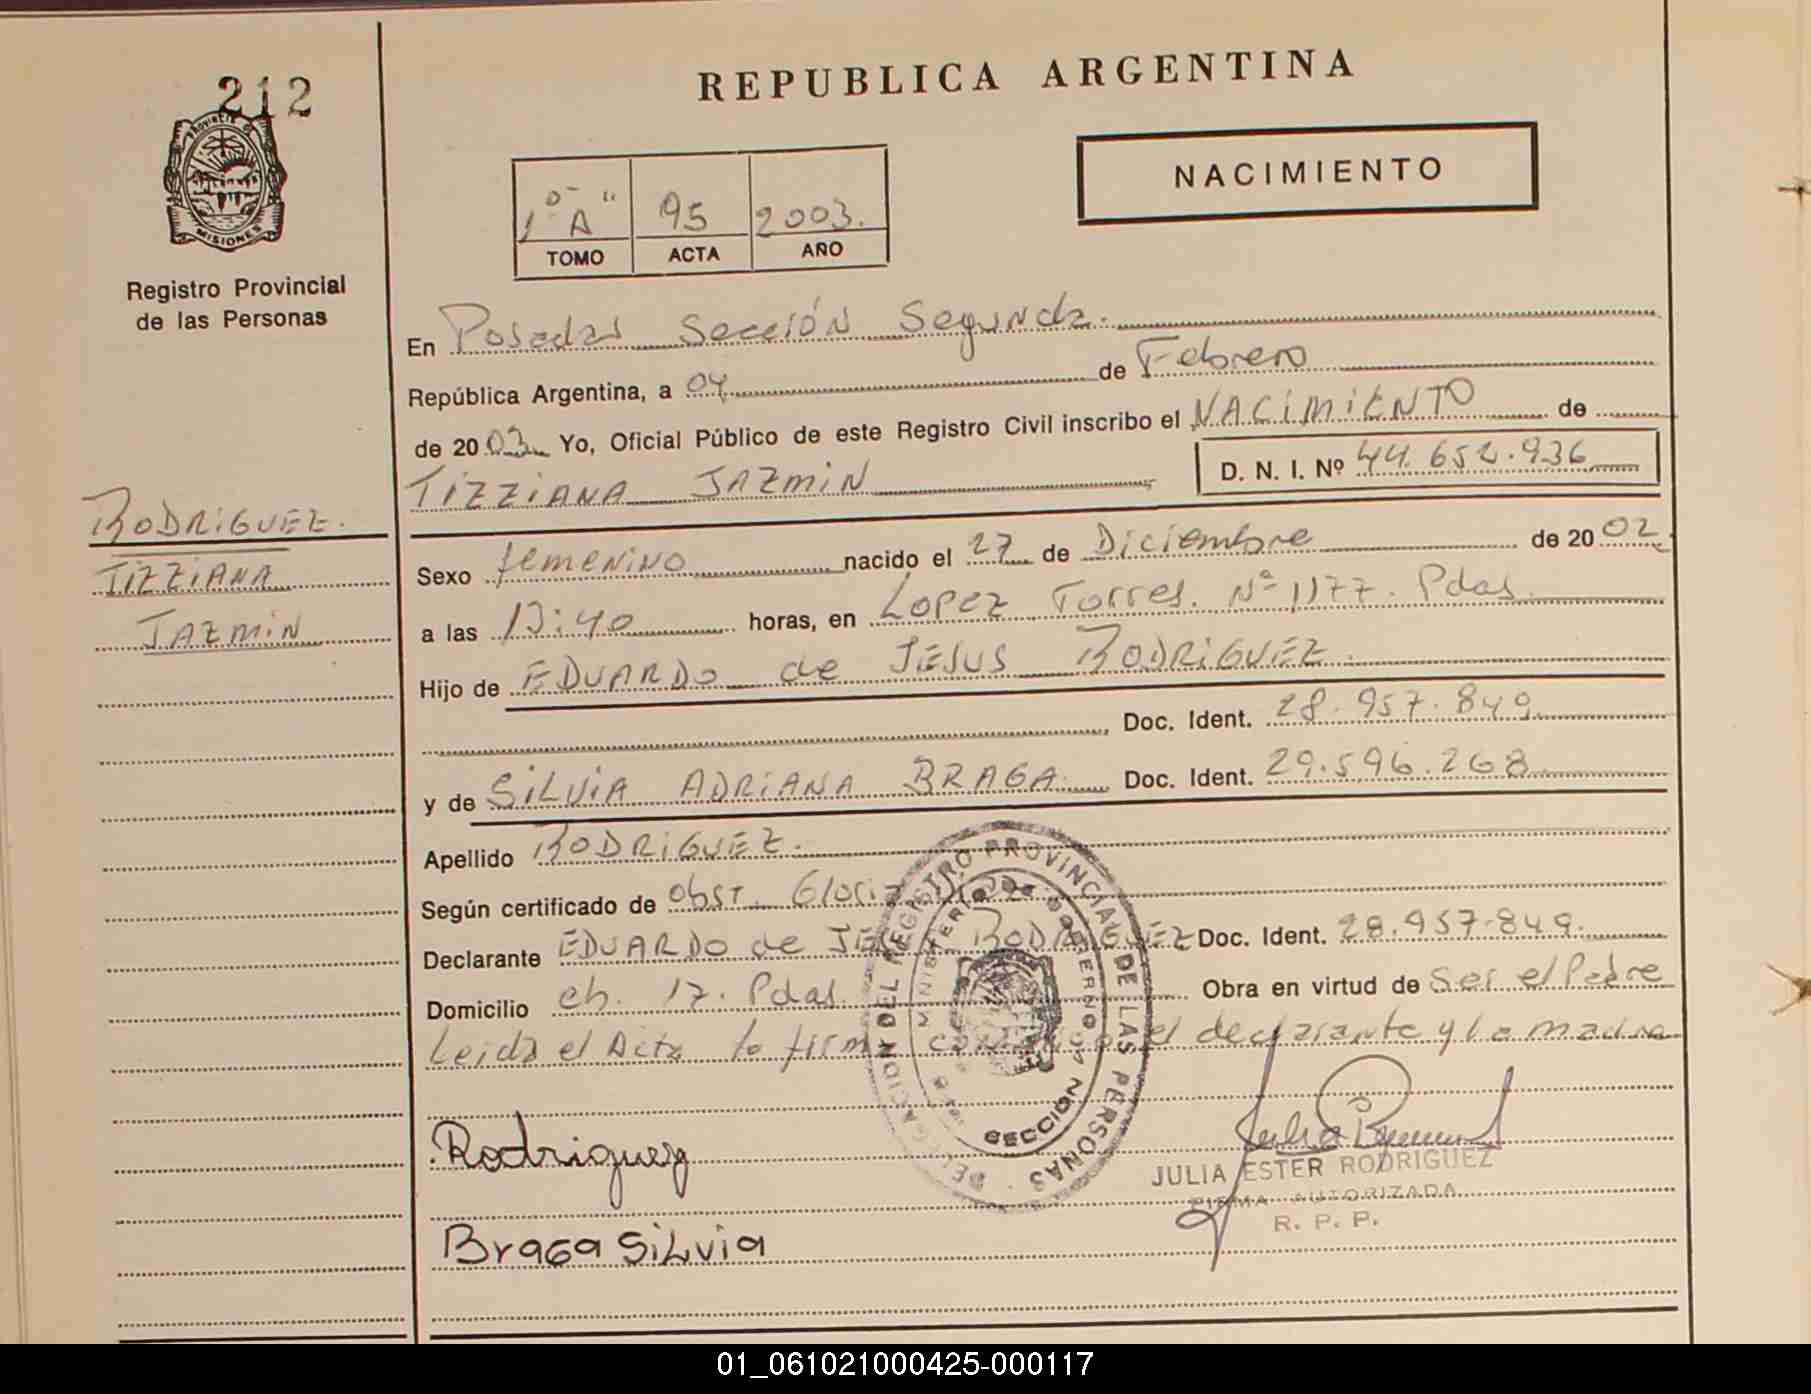 212
REPUBLICA ARGENTINA
PROVINCIA DE
MISIONES
Registro Provincial
de las Personas
1º "A" 95 2003.
TOMO ACTA AÑO
NACIMIENTO
En Posadas Sección Segunda.
República Argentina, a 04 de Febrero
de 2003 Yo, Oficial Público de este Registro Civil inscribo el NACIMIENTO de
TIZZIANA JAZMIN D. N. I. Nº 44.652.936
RODRIGUEZ.
TIZZIANA
JAZMIN
Sexo femenino nacido el 27 de Diciembre de 2002
a las 13:40 horas, en LOPEZ Torres. Nº 1177. Pdas.
Hijo de EDUARDO de JESUS RODRIGUEZ.
Doc. Ident. 28.957.849
y de SILVIA ADRIANA BRAGA. Doc. Ident. 29.596.268
Apellido RODRIGUEZ.
Según certificado de obst. Gloria
Declarante EDUARDO de JESUS RODRIGUEZ Doc. Ident. 28.957.849.
Domicilio ch. 17. Pdas. Obra en virtud de Ser el Padre
Leida el Acta la firma conmigo el declarante y la madre
DELEGACION DEL REGISTRO PROVINCIAL DE LAS PERSONAS
MINISTERIO DE GOBIERNO
SECCION
Rodriguez
Braga Silvia
JULIA ESTER RODRIGUEZ
FIRMA AUTORIZADA
R. P. P.
01_061021000425-000117